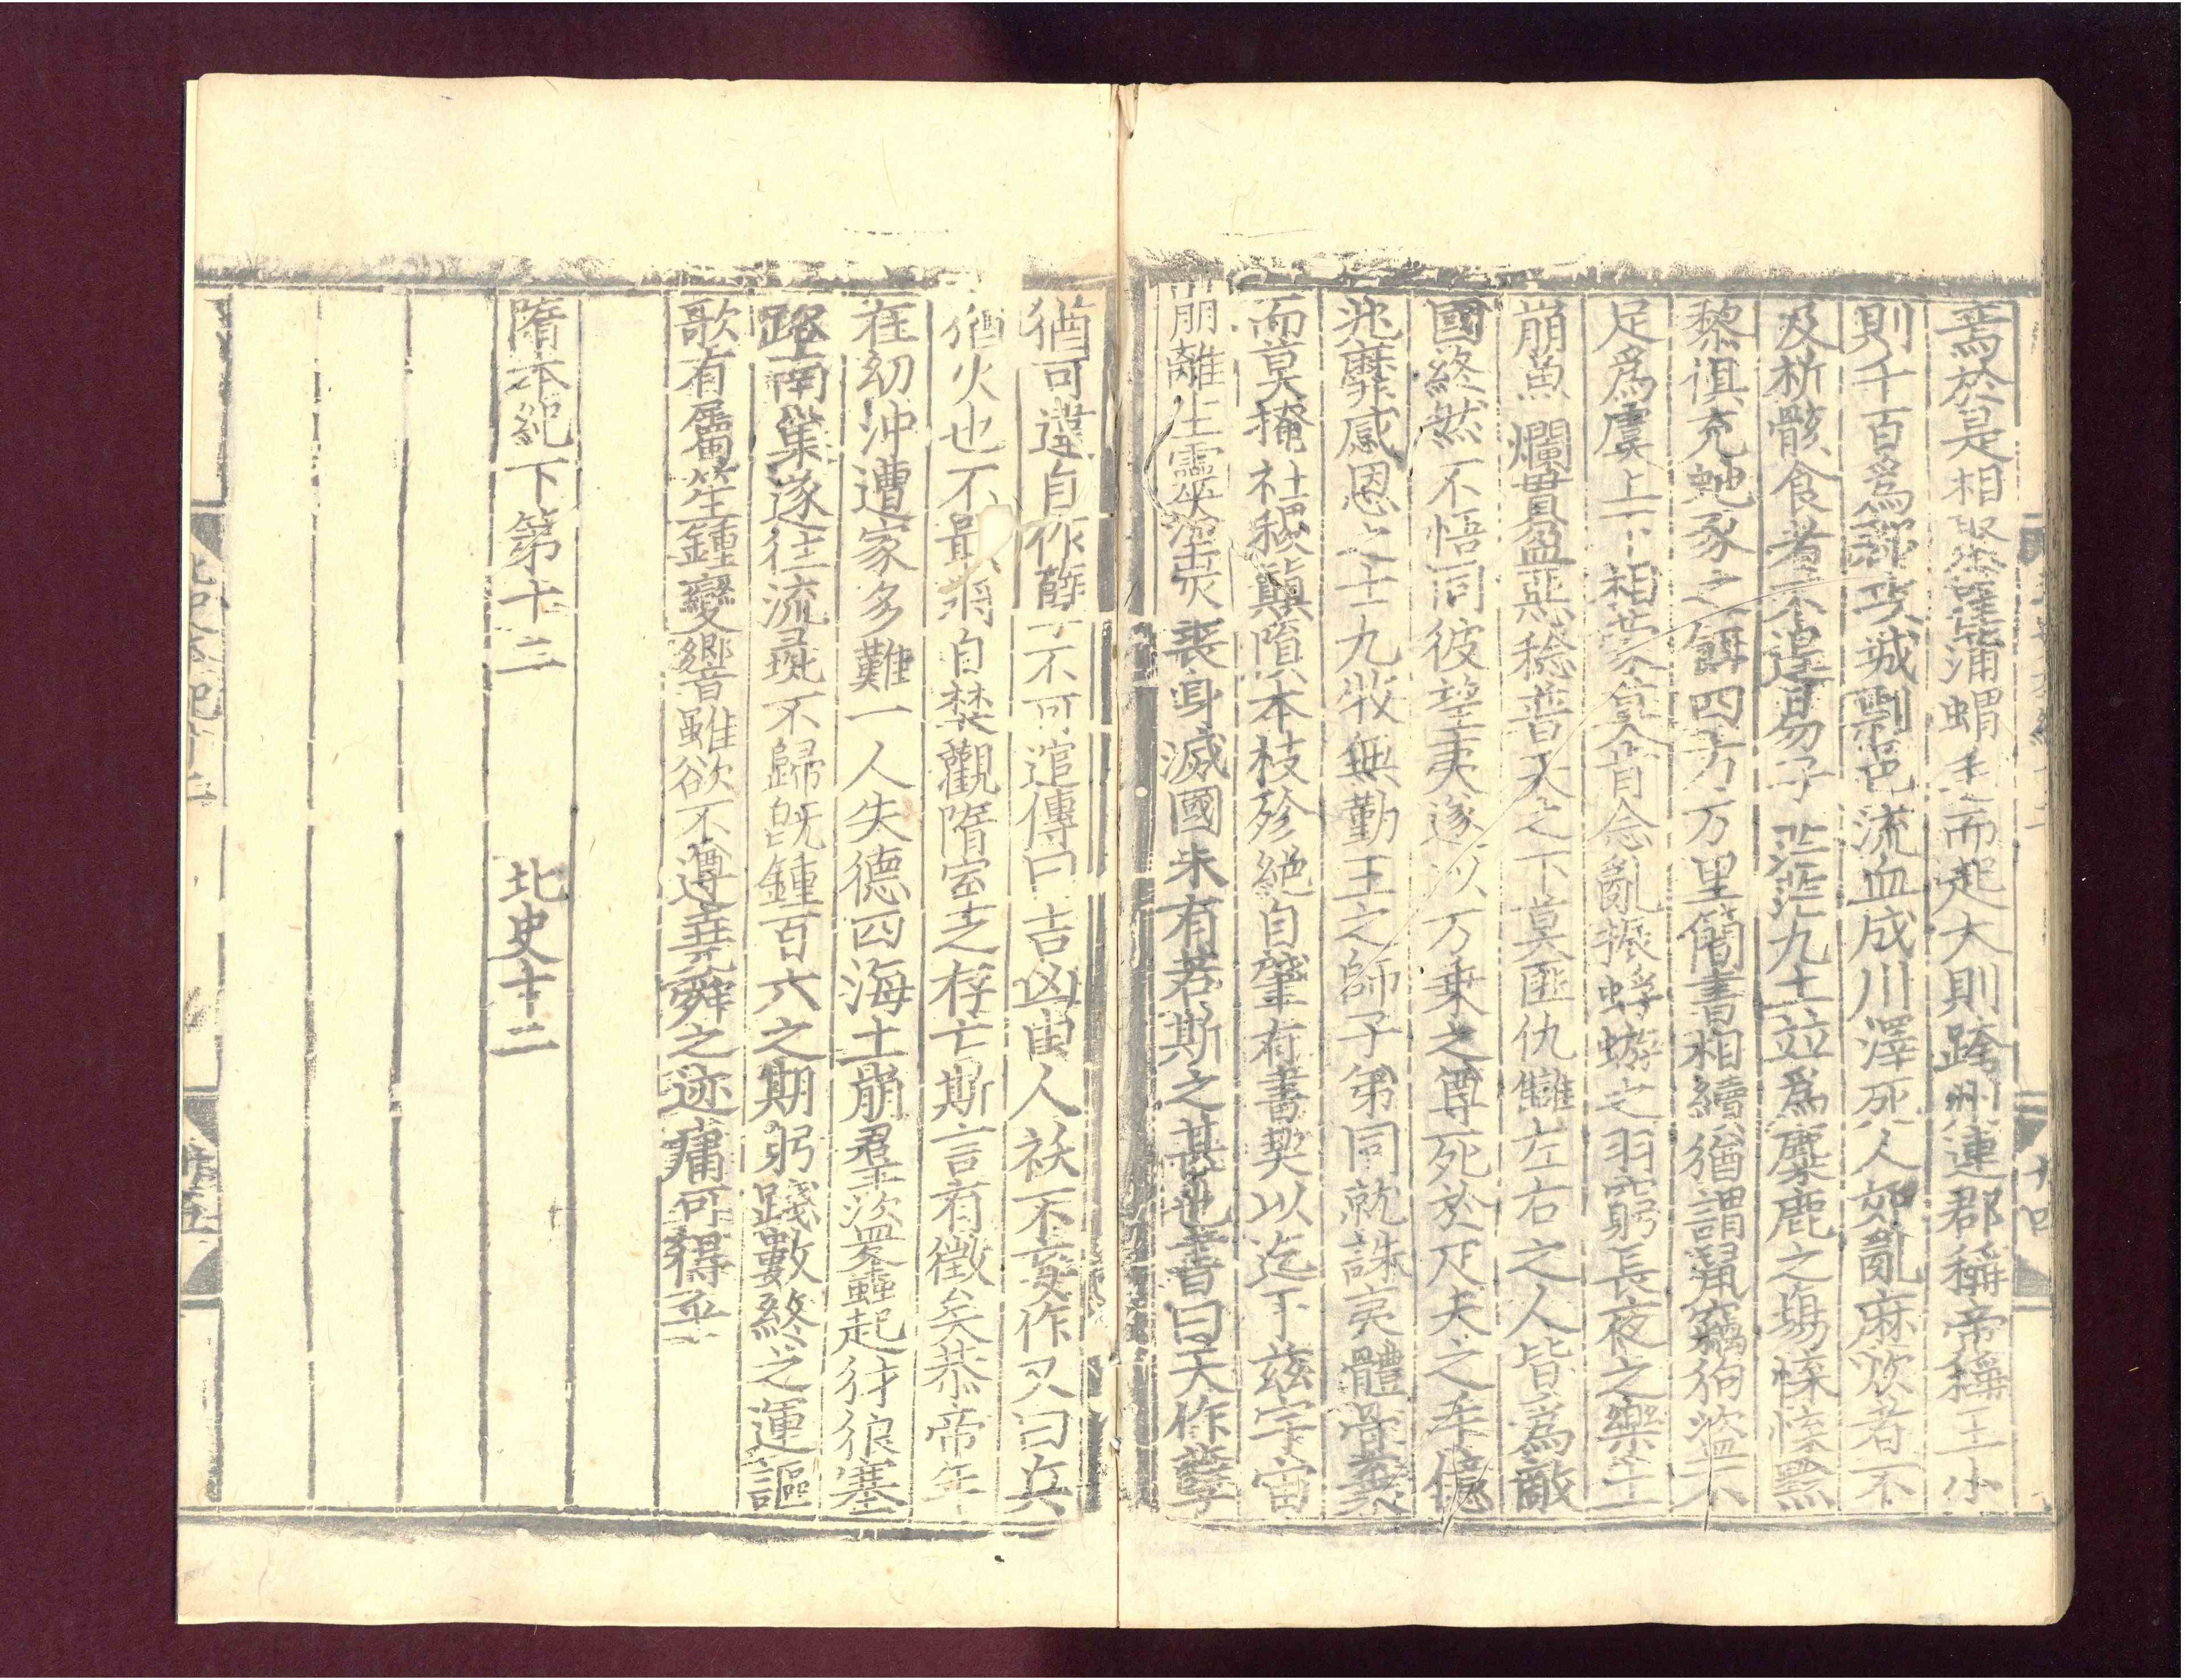 焉於是相聚萑蒲蝟毛而起大則跨州連郡稱帝稱王小
則千百爲羣攻城剽邑流血成川澤死人如亂麻炊者不
及析骸食者不遑易子茫茫九土竝爲麋鹿之場悰悰黔
黎俱充虵豕之餌四方万里簡書相續猶謂鼠竊狗盜不
足爲虞上下相蒙莫肯念亂振蜉蝣之羽窮長夜之樂土
崩魚爛貫盈惡稔普天之下莫匪仇讎左右之人皆爲敵
國終然不悟同彼望夷遂以万乗之尊死於疋夫之手億
兆靡感恩之士九牧無勤王之師子弟同就誅夷體骨棄
而莫掩社稷顚隕本枝殄絶自肇有書契以迄于兹宇宙
崩離生靈塗炭喪身滅國未有若斯之甚也書曰天作孽
猶可違自作孽不可逭傳曰吉凶由人祅不妄作又曰兵
猶火也不戢將自焚觀隋室之存亡斯言有徵矣恭帝年
在幼沖遭家多難一人失德四海土崩羣盜蠭起豺狼塞
路南巢遂往流彘不歸旣鍾百六之期躬踐數終之運謳
歌有屬笙鍾變響雖欲不遵堯舜之迹庸可得乎
隋本紀下第十二　　　北史十二
北史本紀十二
十五
十四